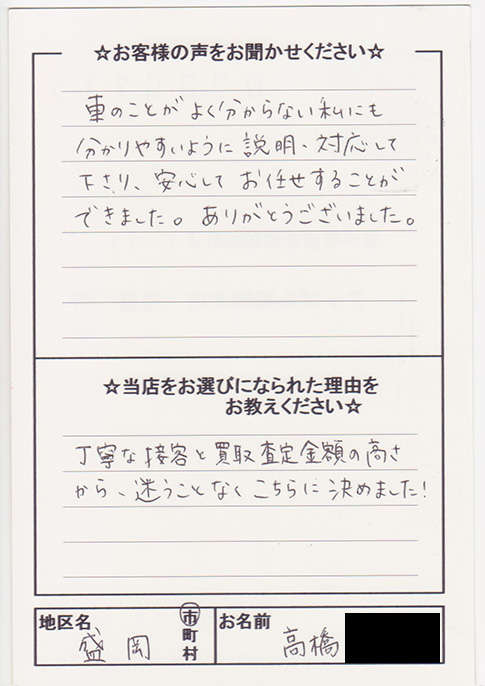 ☆お客様の声をお聞かせください☆
車のことがよく分からない私にも
分かりやすいように説明、対応して
下さり、安心してお任せすることが
できました。ありがとうございました。
☆当店をお選びになられた理由を
お教えください☆
丁寧な接客と買取査定金額の高さ
から、迷うことなくこちらに決めました!
地区名 盛岡 市町村 お名前 高橋